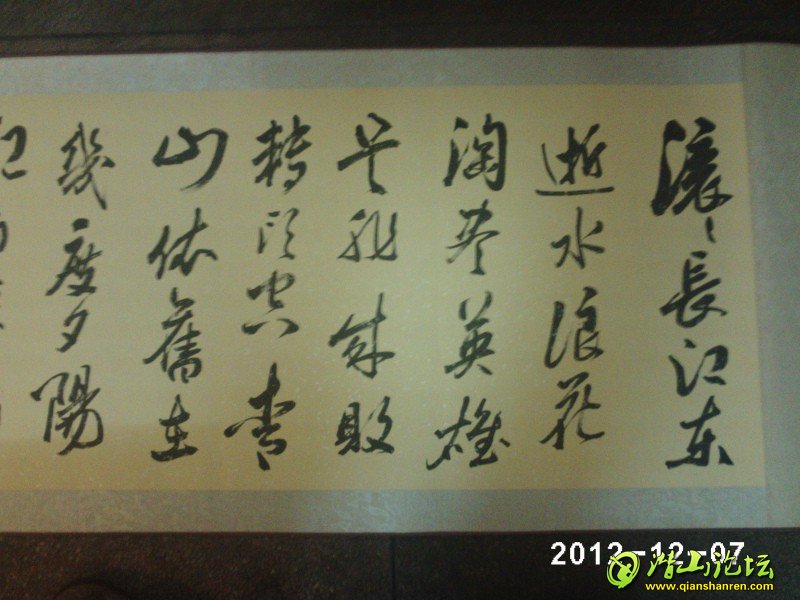 滚〻長江东
逝水浪花
淘尽英雄
是非成败
转頭空青
山依舊在
幾度夕陽
2012-12-07
潜山论坛
www.qianshanren.com